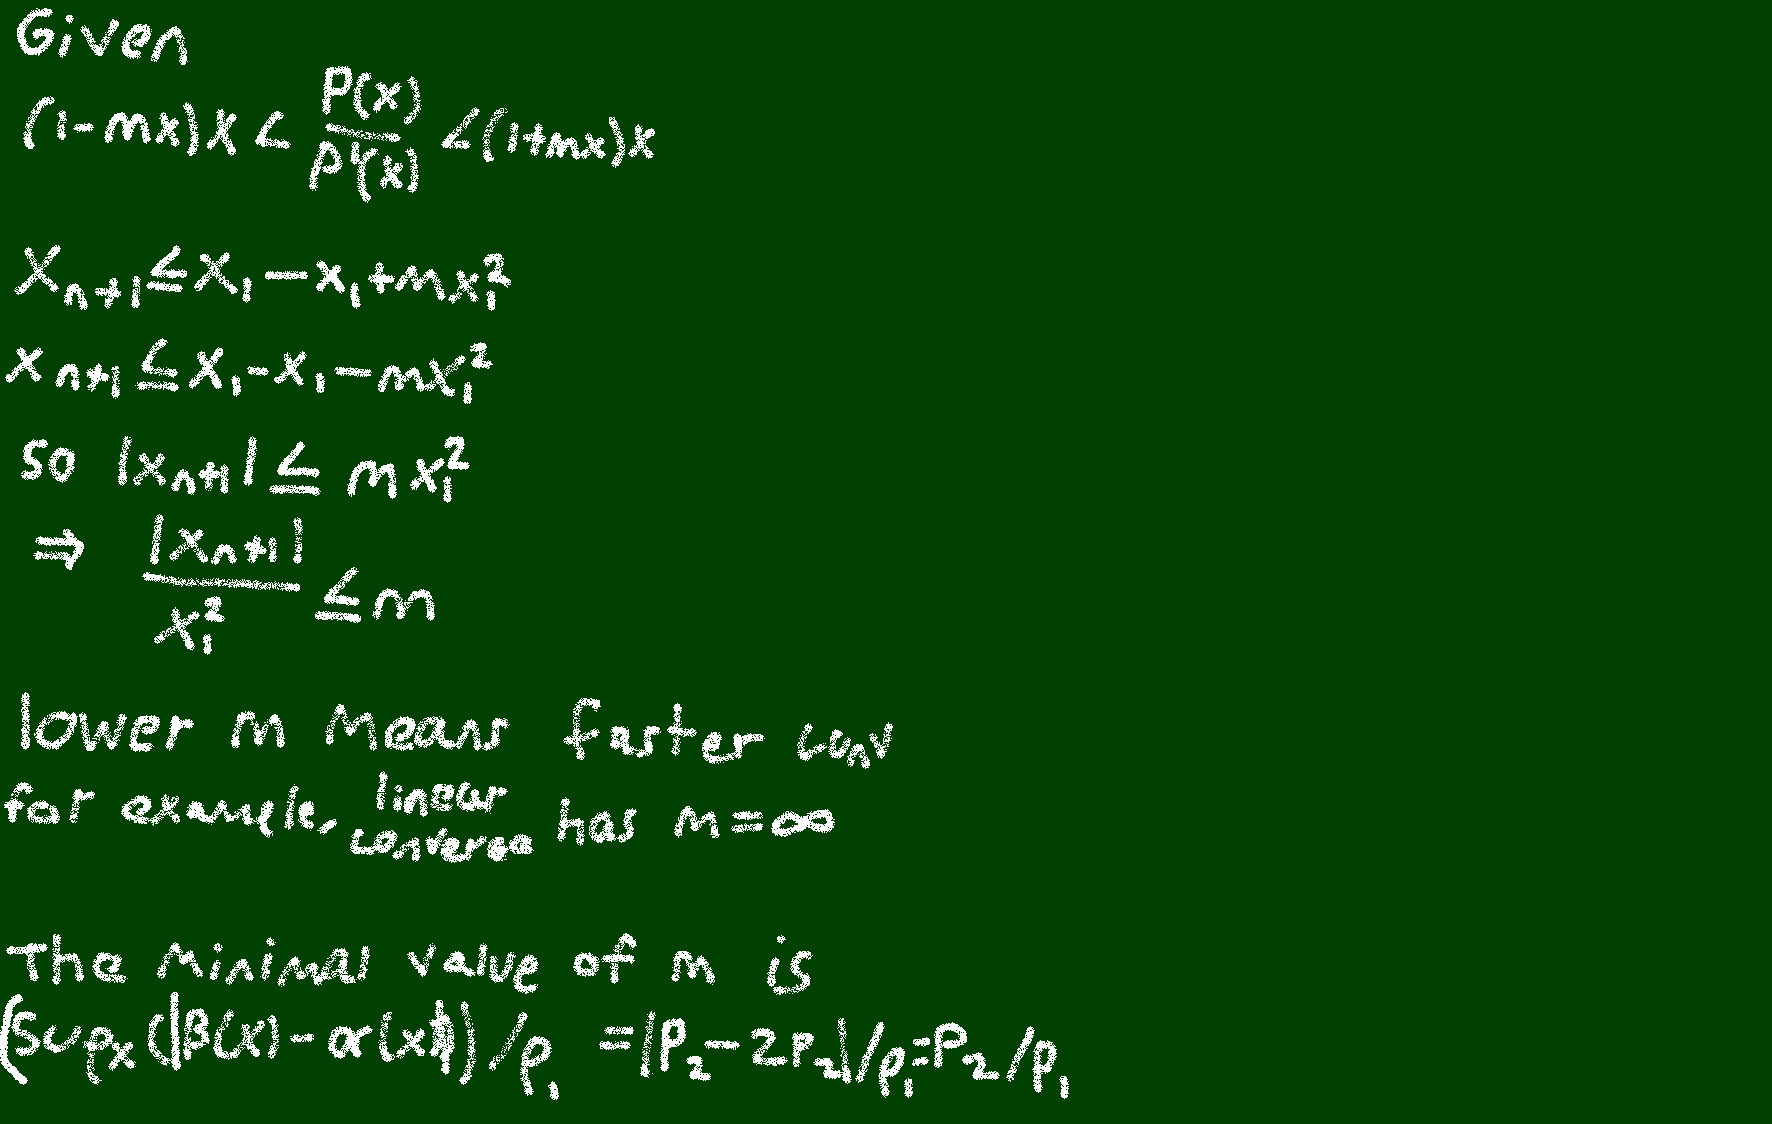 Given
(1-mx)x < P(x)/P'(x) < (1+mx)x
x_{n+1} ≤ x_1 - x_1 + mx_1^2
x_{n+1} ≤ x_1 - x_1 - mx_1^2
so |x_{n+1}| ≤ m x_1^2
⇒ |x_{n+1}| / x_1^2 ≤ m
lower m means faster conv
for example, linear converge has m=∞
The minimal value of m is
(Sup_x(|β(x) - α(x)|))/p_1 = |P_2 - 2P_2|/p_1 = P_2/p_1